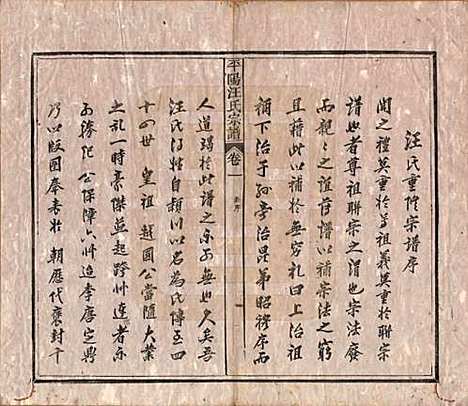 汪氏重修宗譜序
聞之禮莫重於尊祖義莫重於聯宗
譜也者尊祖聯宗之謂也宗法廢
而親親之誼薄譜以補宗法之窮
且藉以補於無窮禮曰上治祖
禰下治子孫旁治昆弟昭穆序而
平陽汪氏宗譜 卷一
人道竭於此譜之示於無也久矣吾
汪氏得姓自潁川以名為氏傳至四
十四世 皇祖越國公當隋大業
之亂一時豪傑並起跨州連者示
公保障六州迨李唐定鼎
乃以版圖奉表於 朝歷代褒封千